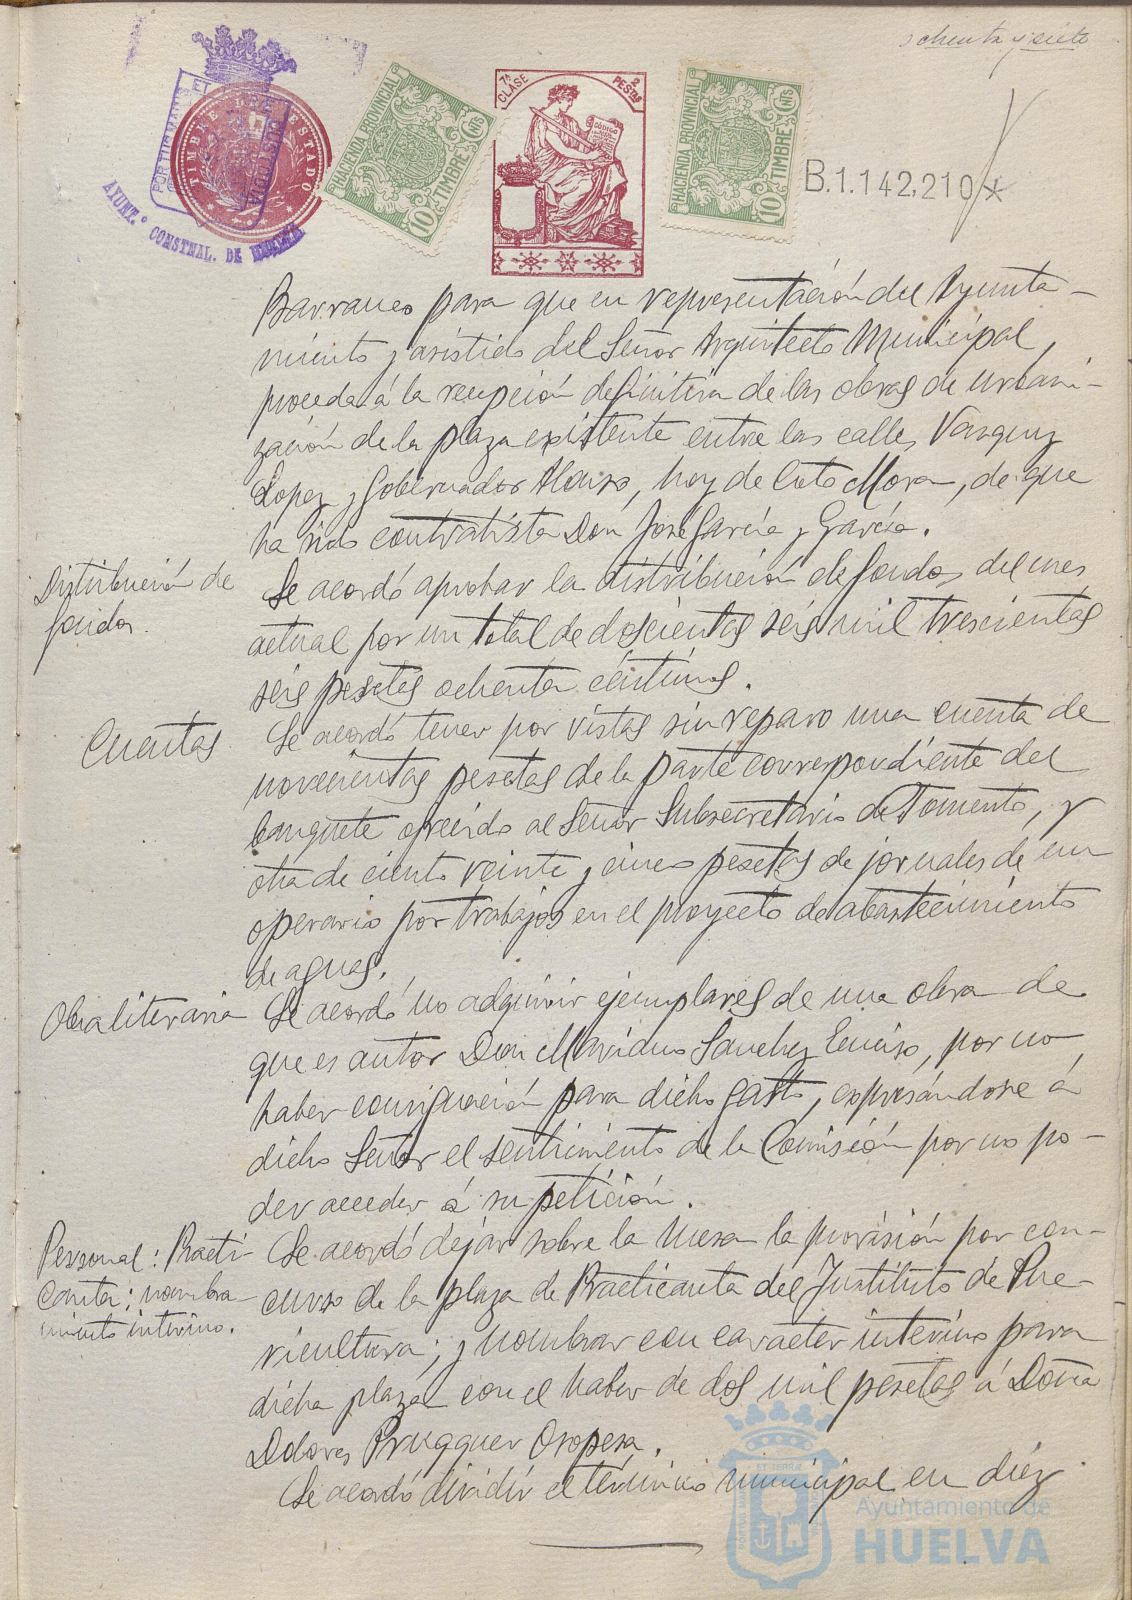 ochenta y siete
7ª CLASE
2 PESTAS
CÓDIGO
TIMBRE DEL ESTADO
HACIENDA PROVINCIAL
TIMBRE
10 CNTS
HACIENDA PROVINCIAL
TIMBRE
10 CNTS
B.1.142,210*
PORTUS MARIS ET
CUSTODIA
AYUNT.º CONSTNAL. DE HUELVA
Barranco para que en representación del Ayunta-
miento y asistido del Señor Arquitecto Municipal,
proceda á la recepción definitiva de las obras de urbani-
zación de la plaza existente entre las calles Vazquez
Lopez y Gobernador Alonso, hoy de Coto Mora, de que
ha sido contratista Don José García y García.
Distribución de
fondos.
Se acordó aprobar la distribución de fondos del mes
actual por un total de doscientas seis mil trescientas
seis pesetas ochenta céntimos.
Cuentas
Se acordó tener por vistas sin reparo una cuenta de
novecientas pesetas de la parte correspondiente del
banquete ofrecido al Señor Subsecretario de Fomento, y
otra de ciento veinte y cinco pesetas de jornales de un
operario por trabajos en el proyecto de abastecimiento
de aguas.
Obra literaria
Se acordó no adquirir ejemplares de una obra de
que es autor Don Mariano Sanchez Enciso, por no
haber consignación para dicho gasto, expresándose á
dicho Señor el sentimiento de la Comisión por no po-
der acceder á su petición.
Personal: Practi-
canta; nombra-
miento interino.
Se acordó dejar sobre la mesa la provisión por con-
curso de la plaza de Practicanta del Instituto de Pue-
ricultura; y nombrar con caracter interino para
dicha plaza con el haber de dos mil pesetas á Doña
Dolores Brugguer Oropesa.
Se acordó dividir el término municipal en diez
Ayuntamiento de
HUELVA